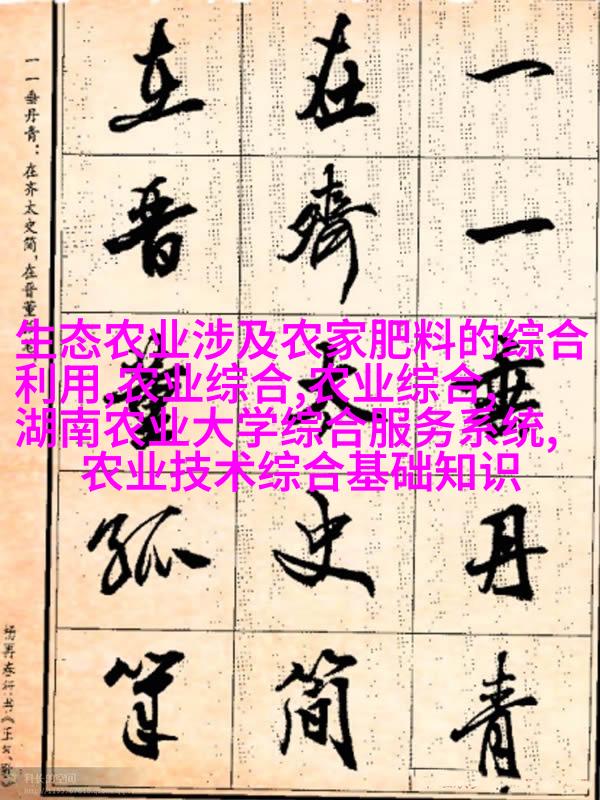 一一垂丹青
在齐太史简
在晋董狐笔
一一垂丹青:在齐太史简,在晋董
生态农业涉及农家肥料的综合
利用,农业综合,农业综合,
湖南农业大学综合服务系统,
农业技术综合基础知识
科长的空间